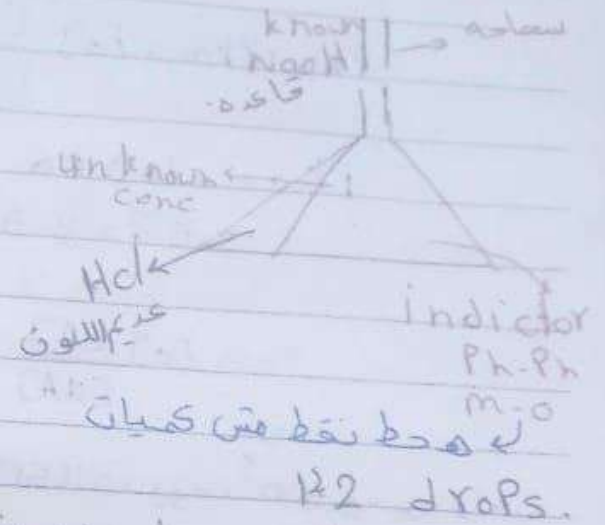 known سحاحه
NaoH
قاعده.
unknown
conc
Hcl
عديم اللون
indictor
Ph-Ph
m-o
هحط نقط مش كميات
1:2 drops.